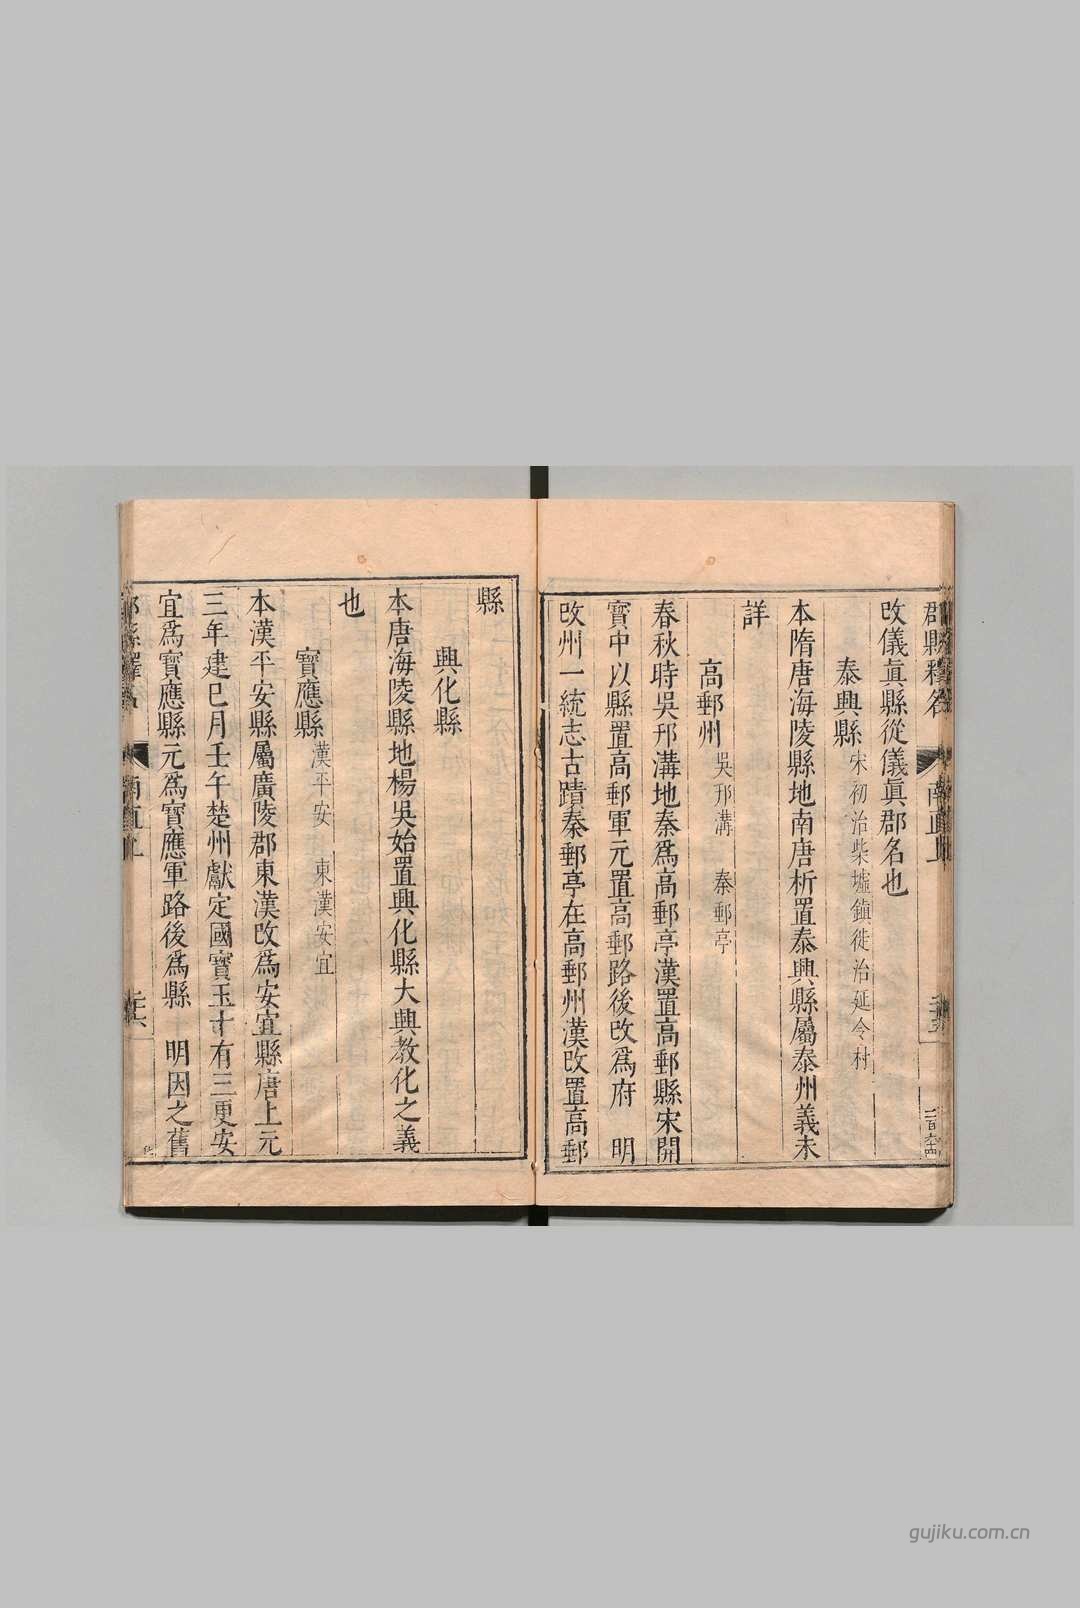 郡縣釋名 南直上 二十五
改儀眞縣從儀眞郡名也
泰興縣 宋初治柴墟鎮徙治延令村
本隋唐海陵縣地南唐析置泰興縣屬泰州義未
詳
高郵州 吳邗溝 秦郵亭
春秋時吳邗溝地秦爲高郵亭漢置高郵縣宋開
寶中以縣置高郵軍元置高郵路後改爲府 明
改州一統志古蹟秦郵亭在高郵州漢改置高郵
縣
興化縣
本唐海陵縣地楊吳始置興化縣大興教化之義
也
寶應縣 漢平安 東漢安宜
本漢平安縣屬廣陵郡東漢改爲安宜縣唐上元
三年建巳月壬午楚州獻定國寶玉十有三更安
宜爲寶應縣元爲寶應軍路後爲縣 明因之舊
郡縣釋名 南直上 二十六
gujiku.com.cn